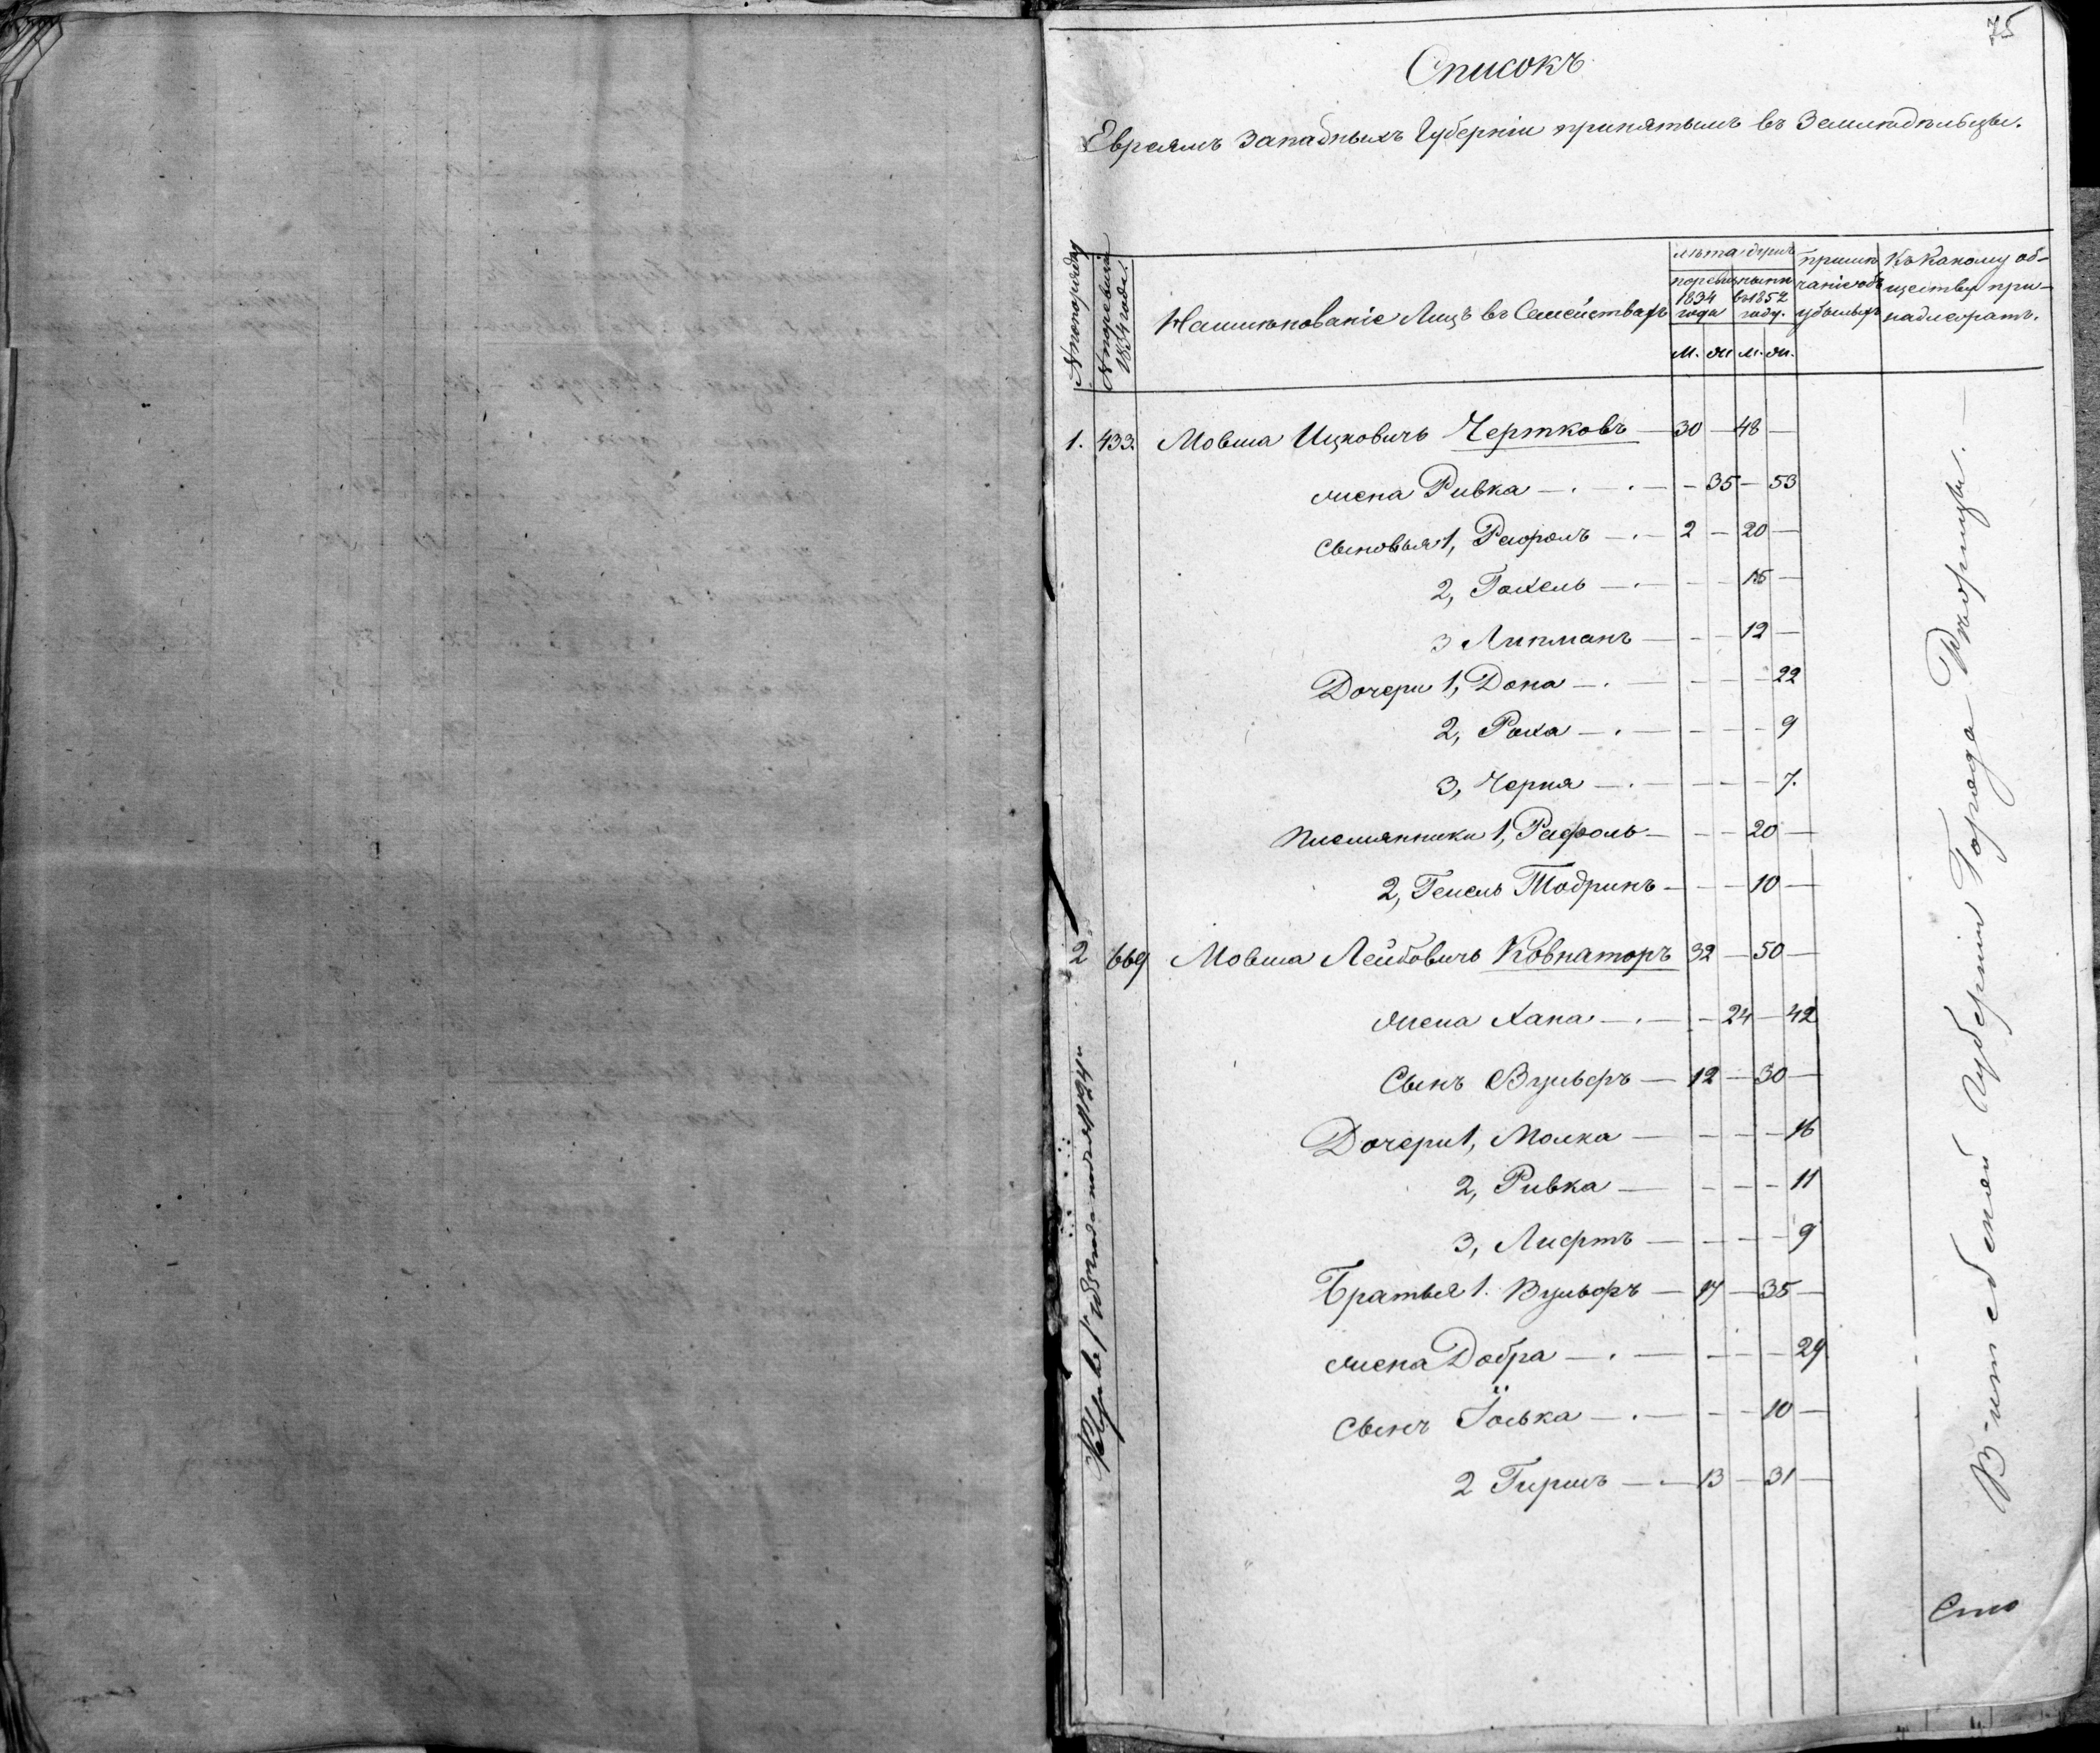 75
Списокъ
Евреямъ Западныхъ Губерніи принятымъ въ Земледѣльцы.
№ по порядку
№ по ревизіи 1834 года.
Наименованіе Лицъ въ Семействахъ
лѣта душъ
по ревизіи 1834 года
нынѣ въ 1852 году.
м. ж. м. ж.
примѣчаніе объ убылыхъ
Къ Какому обществу принадлежатъ.
1. 433. Мовша Ицковичь Чертковъ — 30 — 48 —
жена Ривка — . — . — — 35 — 53
Сыновья 1, Рафолъ — . — 2 — 20 —
2, Гохель — . — — — 16 —
3 Липманъ — — — 12 —
Дочери 1, Дона — . — — — — 22
2, Роха — . — — — — 9
3, Черня — . — — — — 7.
Племянники 1, Рафоль — — — 20 —
2, Гешель Тодринъ — — — 10 —
2 669 Мовша Лейбовичь Ковнаторъ 32 — 50 —
жена Хана — . — — 24 — 42
Сынъ Вульфъ — 12 — 30 —
Дочери 1, Малка — — — — 16
2, Ривка — — — — 11
3, Лифтъ — — — — 9
Братья 1. Вульфъ — 17 — 35 —
жена Добра — . — — — — 29
сынъ Іоська — . — — — 10 —
2 Гиршъ — . — 13 — 31 —
Витебской Губерніи Города Рѣжицы. —